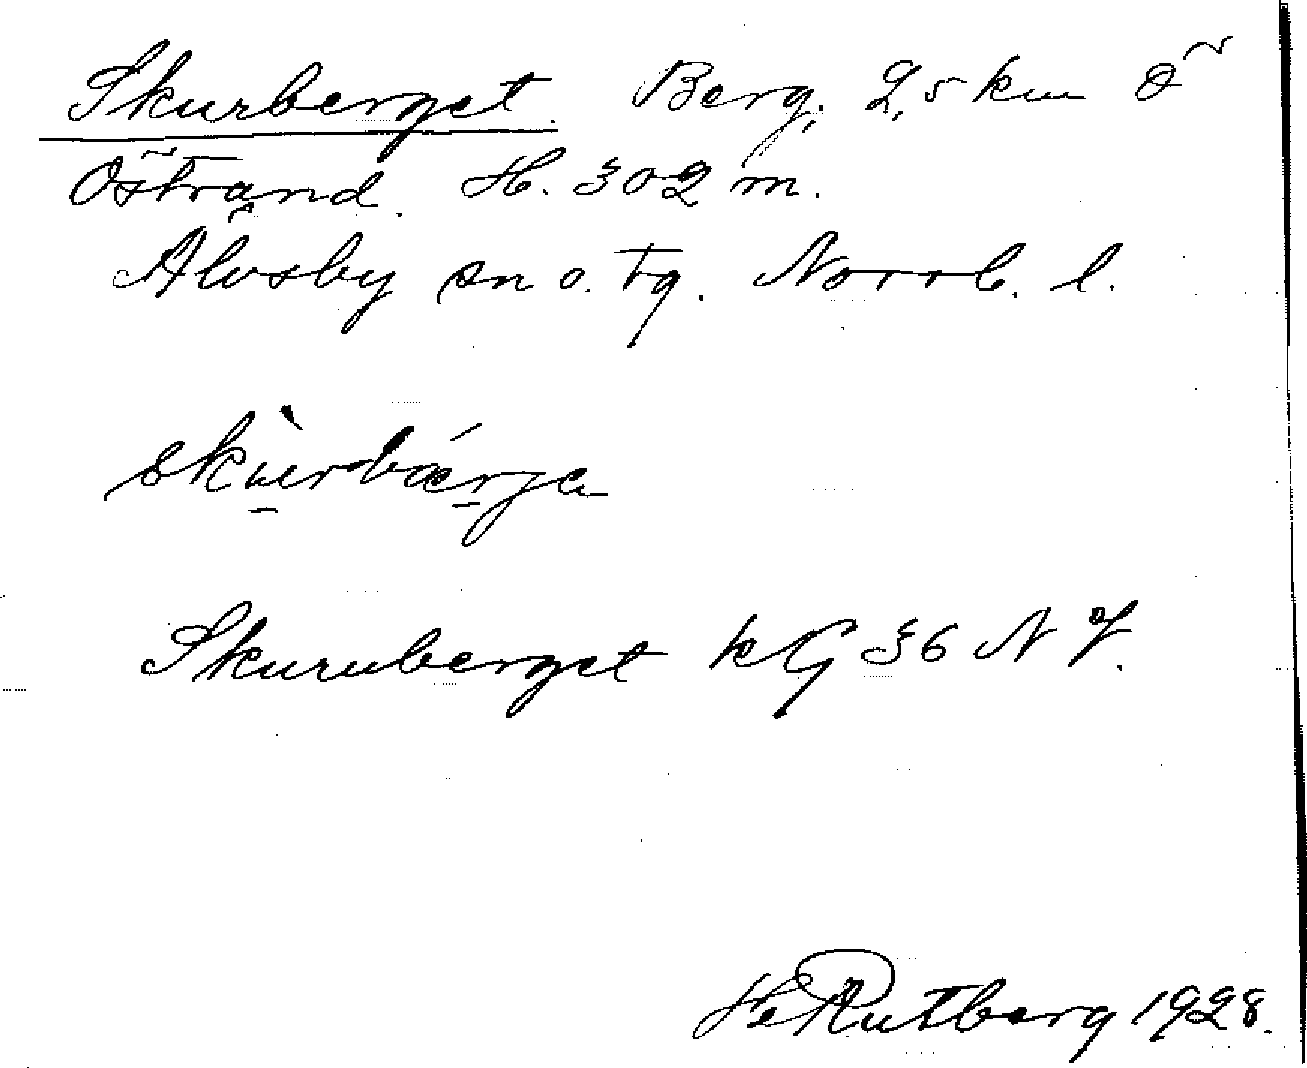 Skurberget. Berg, 2,5 km Ö
Östrand. H. 302 m.
Älvsby sn o. tg. Norrb. l.
skùrbǽrje
Skuruberget kG 36 N V.
H. Rutberg 1928.